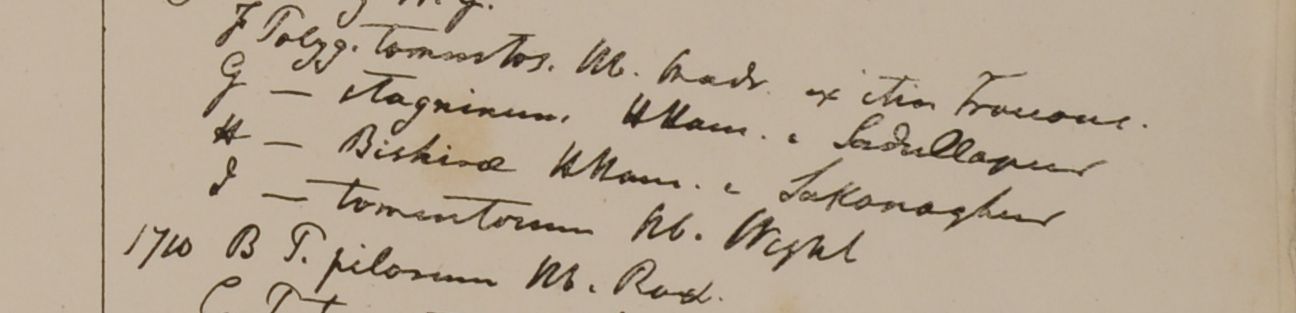 F Polyg. tomentos. Hb. Madr. ex itin Travanc.
G — stagninum. HHam. e Sadullapur
H — Biskiræ HHam. e Lokanaghur
I — tomentosum Hb. Wight
1710 B P. pilosum Hb. Rox.